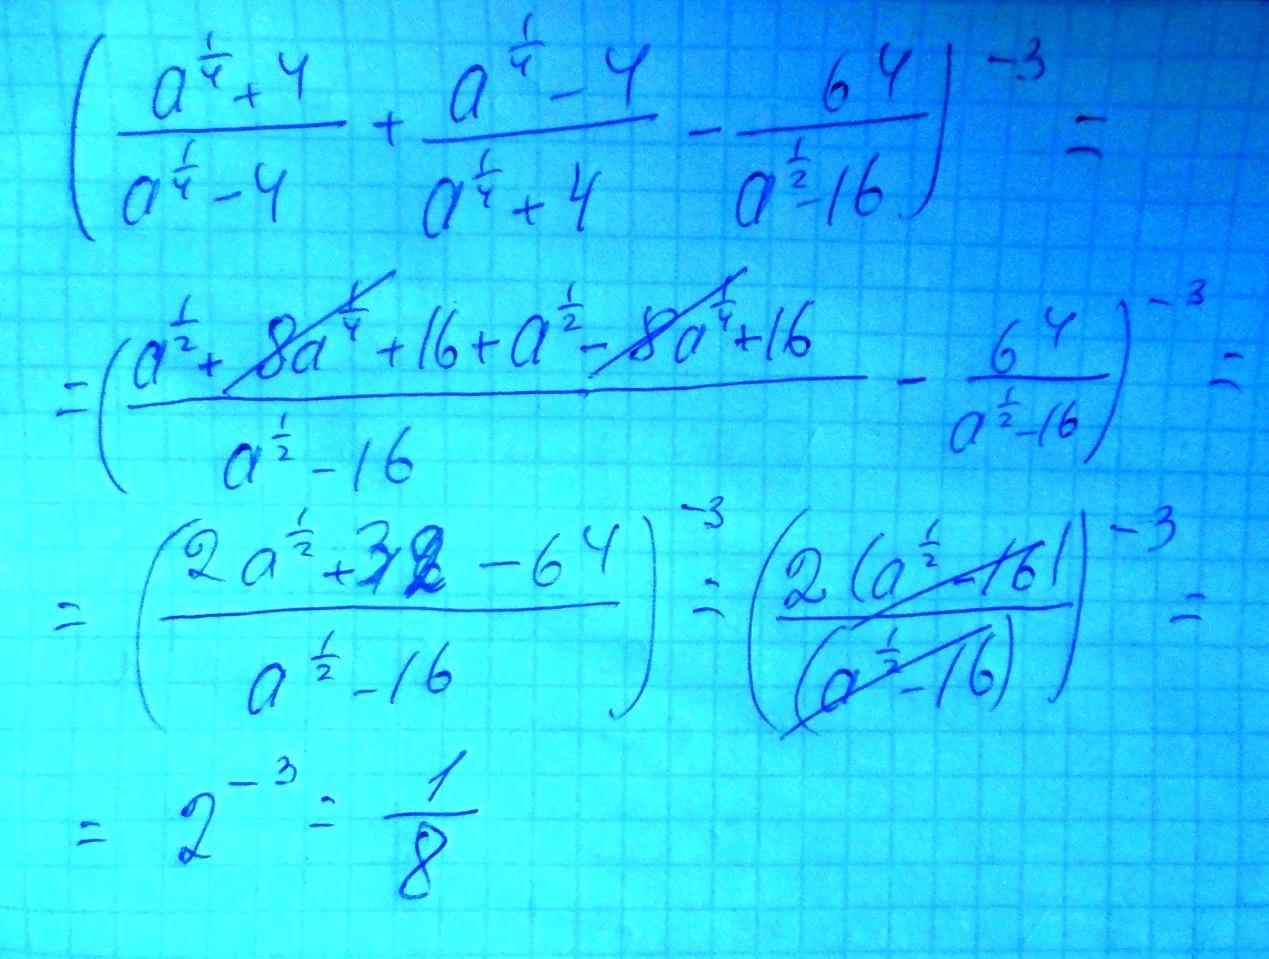 ( (a^(1/4) + 4)/(a^(1/4) - 4) + (a^(1/4) - 4)/(a^(1/4) + 4) - 64/(a^(1/2) - 16) )^(-3) =
= ( (a^(1/2) + 8a^(1/4) + 16 + a^(1/2) - 8a^(1/4) + 16)/(a^(1/2) - 16) - 64/(a^(1/2) - 16) )^(-3) =
= ( (2a^(1/2) + 32 - 64)/(a^(1/2) - 16) )^(-3) = ( 2(a^(1/2) - 16)/(a^(1/2) - 16) )^(-3) =
= 2^(-3) = 1/8